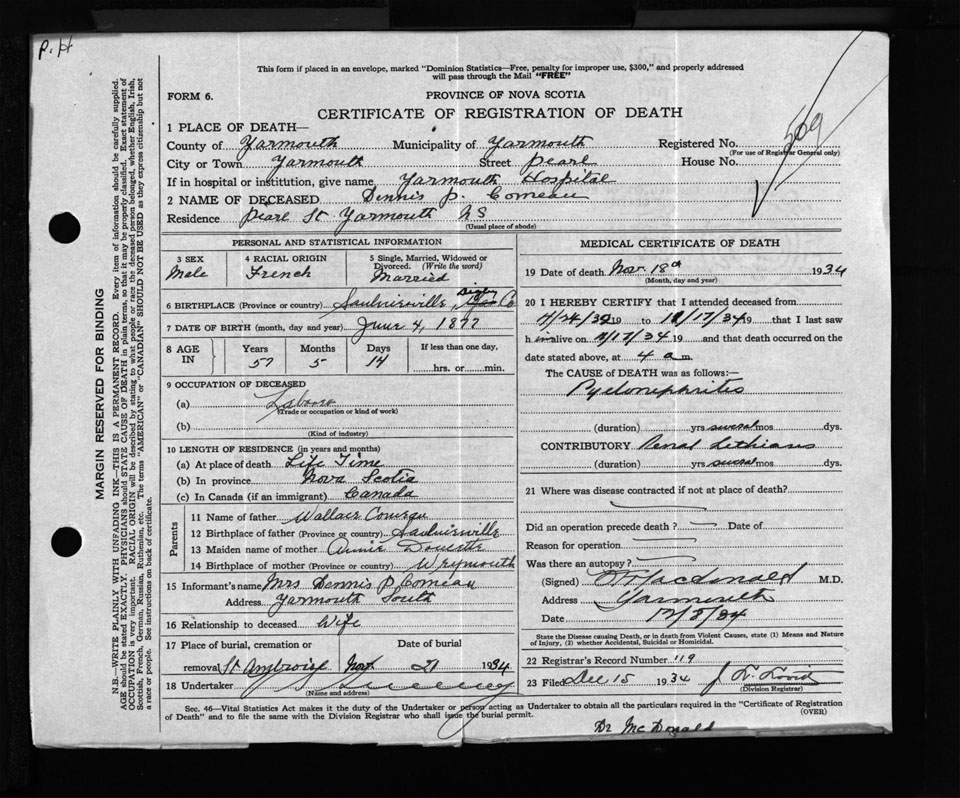 P. H
This form if placed in an envelope, marked "Dominion Statistics—Free, penalty for improper use, $300," and properly addressed
will pass through the Mail "FREE"
FORM 6.
PROVINCE OF NOVA SCOTIA
CERTIFICATE OF REGISTRATION OF DEATH
509
1 PLACE OF DEATH—
County of Yarmouth Municipality of Yarmouth Registered No.
(For use of Registrar General only)
City or Town Yarmouth Street Pearl House No.
If in hospital or institution, give name Yarmouth Hospital
2 NAME OF DECEASED Dennis P. Comeau
Residence Pearl St Yarmouth NS
(Usual place of abode)
PERSONAL AND STATISTICAL INFORMATION
3 SEX
Male
4 RACIAL ORIGIN
French
5 Single, Married, Widowed or
Divorced. (Write the word)
Married
6 BIRTHPLACE (Province or country) Saulnierville, Digby Co
7 DATE OF BIRTH (month, day and year) June 4, 1877
8 AGE IN
Years Months Days If less than one day,
57 5 14 hrs. or min.
9 OCCUPATION OF DECEASED
(a) Labourer
(Trade or occupation or kind of work)
(b)
(Kind of industry)
10 LENGTH OF RESIDENCE (in years and months)
(a) At place of death Life Time
(b) In province Nova Scotia
(c) In Canada (if an immigrant) Canada
Parents
11 Name of father Wallace Comeau
12 Birthplace of father (Province or country) Saulnierville
13 Maiden name of mother Annie Doucette
14 Birthplace of mother (Province or country) Weymouth
15 Informant's name Mrs Dennis P. Comeau
Address Yarmouth South
16 Relationship to deceased Wife
17 Place of burial, cremation or Date of burial
removal St Ambroise Nov 21 1934
18 Undertaker
(Name and address)
MEDICAL CERTIFICATE OF DEATH
19 Date of death Nov. 18th 1934
(Month, day and year)
20 I HEREBY CERTIFY that I attended deceased from
19 to 11/17/34 19 that I last saw
h im alive on 11/17/34 19 and that death occurred on the
date stated above, at 4 a m.
The CAUSE of DEATH was as follows:—
Pyelonephritis
(duration) yrs several mos dys.
CONTRIBUTORY Renal Lithiasis
(duration) yrs several mos dys.
21 Where was disease contracted if not at place of death?
Did an operation precede death? Date of
Reason for operation
Was there an autopsy?
(Signed) Macdonald M.D.
Address Yarmouth
Date 12/5/34
State the Disease causing Death, or in death from Violent Causes, state (1) Means and Nature
of Injury, (2) whether Accidental, Suicidal or Homicidal.
22 Registrar's Record Number 119
23 Filed Dec 15 1934
(Division Registrar)
Sec. 46—Vital Statistics Act makes it the duty of the Undertaker or person acting as Undertaker to obtain all the particulars required in the "Certificate of Registration
of Death" and to file the same with the Division Registrar who shall issue the burial permit. (OVER)
Dr McDonald
MARGIN RESERVED FOR BINDING
N.B.—WRITE PLAINLY WITH UNFADING INK—THIS IS A PERMANENT RECORD. Every item of information should be carefully supplied.
AGE should be stated EXACTLY. PHYSICIANS should STATE CAUSE OF DEATH in plain terms, so that it may be properly classified. Exact statement of
OCCUPATION is very important. RACIAL ORIGIN will be described by stating to what people or race the deceased person belonged, whether English, Irish,
Scottish, French, German, Russian, Ruthenian, etc. The terms "AMERICAN" or "CANADIAN" SHOULD NOT BE USED as they express citizenship but not
a race or people. See instructions on back of certificate.